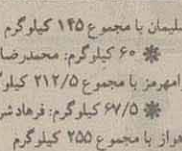 سلیمان با مجموع ۱۴۵ کیلوگرم
❋ ۶۰ کیلوگرم: محمدرضا
امهرمز با مجموع ۲۱۲/۵ کیلو
❋ ۶۷/۵ کیلوگرم: فرهاد
هواز با مجموع ۲۵۵ کیلوگرم